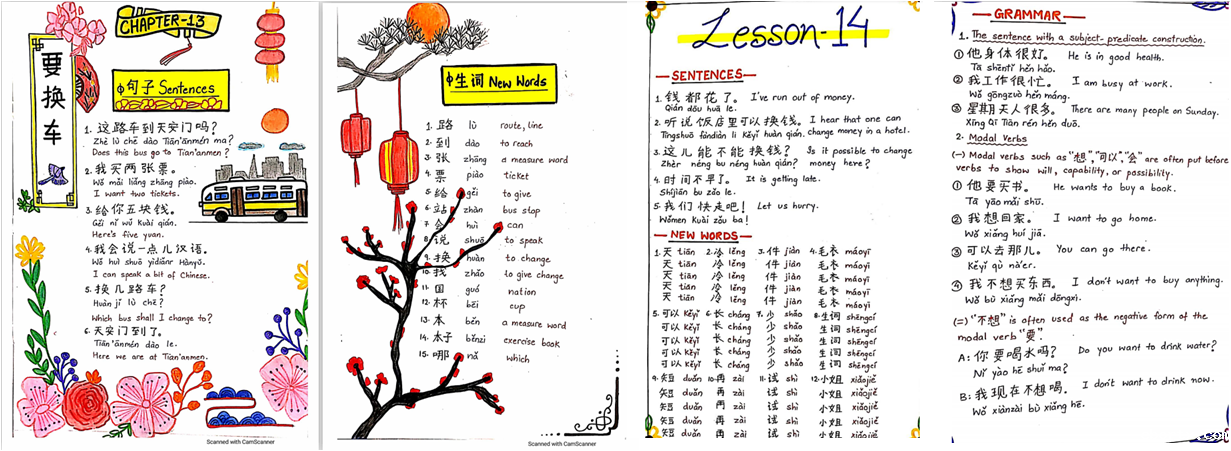 CHAPTER-13
要换车
句子 Sentences
1. 这路车到天安门吗?
Zhè lù chē dào Tiān'ānmén ma?
Does this bus go to Tian'anmen?
2. 我买两张票。
Wǒ mǎi liǎng zhāng piào.
I want two tickets.
3. 给你五块钱。
Gěi nǐ wǔ kuài qián.
Here's five yuan.
4. 我会说一点儿汉语。
Wǒ huì shuō yìdiǎnr Hànyǔ.
I can speak a bit of Chinese.
5. 换几路车?
Huàn jǐ lù chē?
Which bus shall I change to?
6. 天安门到了。
Tiān'ānmén dào le.
Here we are at Tian'anmen.
Scanned with CamScanner
生词 New Words
1. 路 lù route, line
2. 到 dào to reach
3. 张 zhāng a measure word
4. 票 piào ticket
5. 给 gěi to give
6. 站 zhàn bus stop
7. 会 huì can
8. 说 shuō to speak
9. 换 huàn to change
10. 找 zhǎo to give change
11. 国 guó nation
12. 杯 bēi cup
13. 本 běn a measure word
14. 本子 běnzi exercise book
15. 哪 nǎ which
Scanned with CamScanner
Lesson-14
SENTENCES
1. 钱都花了。 I've run out of money.
Qián dōu huā le.
2. 听说饭店里可以换钱。 I hear that one can
Tīngshuō fàndiàn li kěyǐ huàn qián. change money in a hotel.
3. 这儿能不能换钱? Is it possible to change
Zhèr néng bu néng huàn qián? money here?
4. 时间不早了。 It is getting late.
Shíjiān bu zǎo le.
5. 我们快走吧! Let us hurry.
Wǒmen Kuài zǒu ba!
NEW WORDS
1. 天 tiān 2. 冷 lěng 3. 件 jiàn 4. 毛衣 máoyī
天 tiān 冷 lěng 件 jiàn 毛衣 máoyī
天 tiān 冷 lěng 件 jiàn 毛衣 máoyī
天 tiān 冷 lěng 件 jiàn 毛衣 máoyī
天 tiān 冷 lěng 件 jiàn 毛衣 máoyī
5. 可以 Kěyǐ 6. 长 cháng 7. 少 shǎo 8. 生词 shēngcí
可以 Kěyǐ 长 cháng 少 shǎo 生词 shēngcí
可以 Kěyǐ 长 cháng 少 shǎo 生词 shēngcí
可以 Kěyǐ 长 cháng 少 shǎo 生词 shēngcí
可以 Kěyǐ 长 cháng 少 shǎo 生词 shēngcí
9. 短 duǎn 10. 再 zài 11. 试 shì 12. 小姐 xiǎojiě
短 duǎn 再 zài 试 shì 小姐 xiǎojiě
短 duǎn 再 zài 试 shì 小姐 xiǎojiě
短 duǎn 再 zài 试 shì 小姐 xiǎojiě
短 duǎn 再 zài 试 shì 小姐 xiǎojiě
GRAMMAR
1. The sentence with a subject-predicate construction.
① 他身体很好。 He is in good health.
Tā shēntǐ hěn hǎo.
② 我工作很忙。 I am busy at work.
Wǒ gōngzuò hěn máng.
③ 星期天人很多。 There are many people on Sunday.
Xīng Qī Tiān rén hěn duō.
2. Modal Verbs
(一) Modal verbs such as "想","可以","会" are often put before
verbs to show will, capability, or possibility.
① 他要买书。 He wants to buy a book.
Tā yāo mǎi shū.
② 我想回家。 I want to go home.
Wǒ xiǎng huí jiā.
③ 可以去那儿。 You can go there.
Kěyǐ qù nà'er.
④ 我不想买东西。 I don't want to buy anything.
Wǒ bù xiǎng mǎi dōngxi.
(二) "不想" is often used as the negative form of the
modal verb "要".
A: 你要喝水吗? Do you want to drink water?
Nǐ yào hē shuǐ ma?
B: 我现在不想喝。 I don't want to drink now.
Wǒ xiànzài bù xiǎng hē.